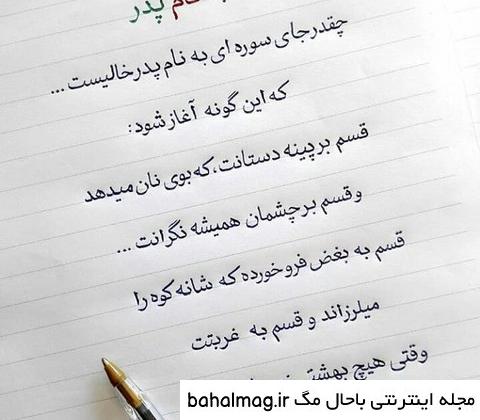 نام پدر
چقدر جای سوره ای به نام پدر خالیست ...
که این گونه آغاز شود:
قسم بر پینه دستانت، که بوی نان میدهد
و قسم بر چشمان همیشه نگرانت ...
قسم به بغض فرو خورده که شانه کوه را
میلرزاند و قسم به غربتت
وقتی هیچ بهشتی
مجله اینترنتی باحال مگ bahalmag.ir